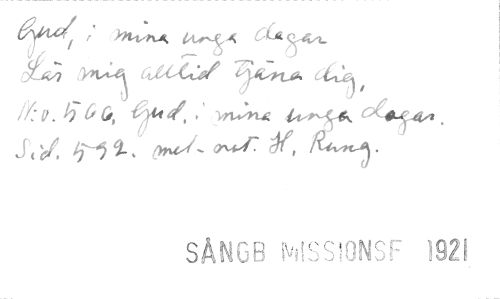 Gud, i mina unga dagar
Lär mig alltid tjäna dig,
N:o. 566, Gud, i mina unga dagar.
Sid. 592. mel-not. H. Rung.
SÅNGB MISSIONSF 1921